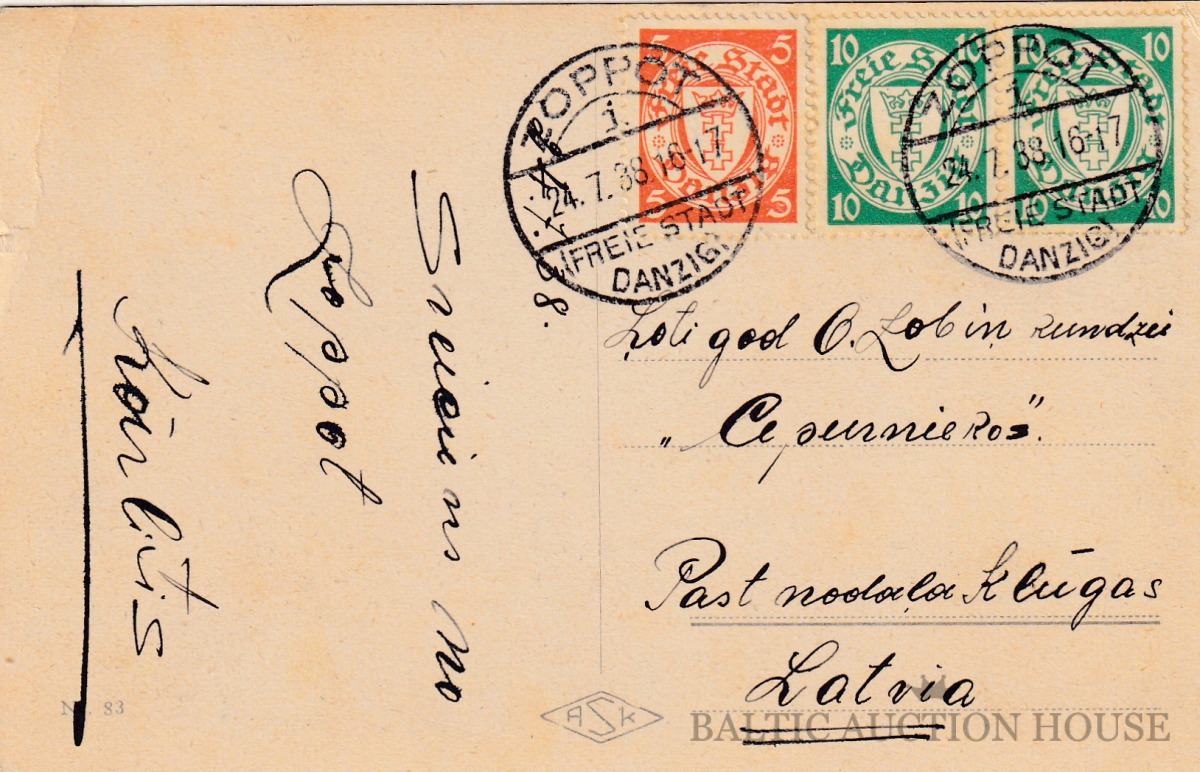 5 5
Freie Stadt
Danzig
5 5
10 10
Freie Stadt
Danzig
10 10
10 10
Freie Stadt
Danzig
10 10
ZOPPOT
i
24.7.38.16-17
(FREIE STADT
DANZIG)
ZOPPOT
i
24.7.38.16-17
(FREIE STADT
DANZIG)
38.
Sveiciens no
Zoppot
Kārlītis
Ļoti god O. Lobiņ kundzei
„Cepurniekos".
Past nodaļa Klūgas
Latvia
Nr. 83
ASK
BALTIC AUCTION HOUSE